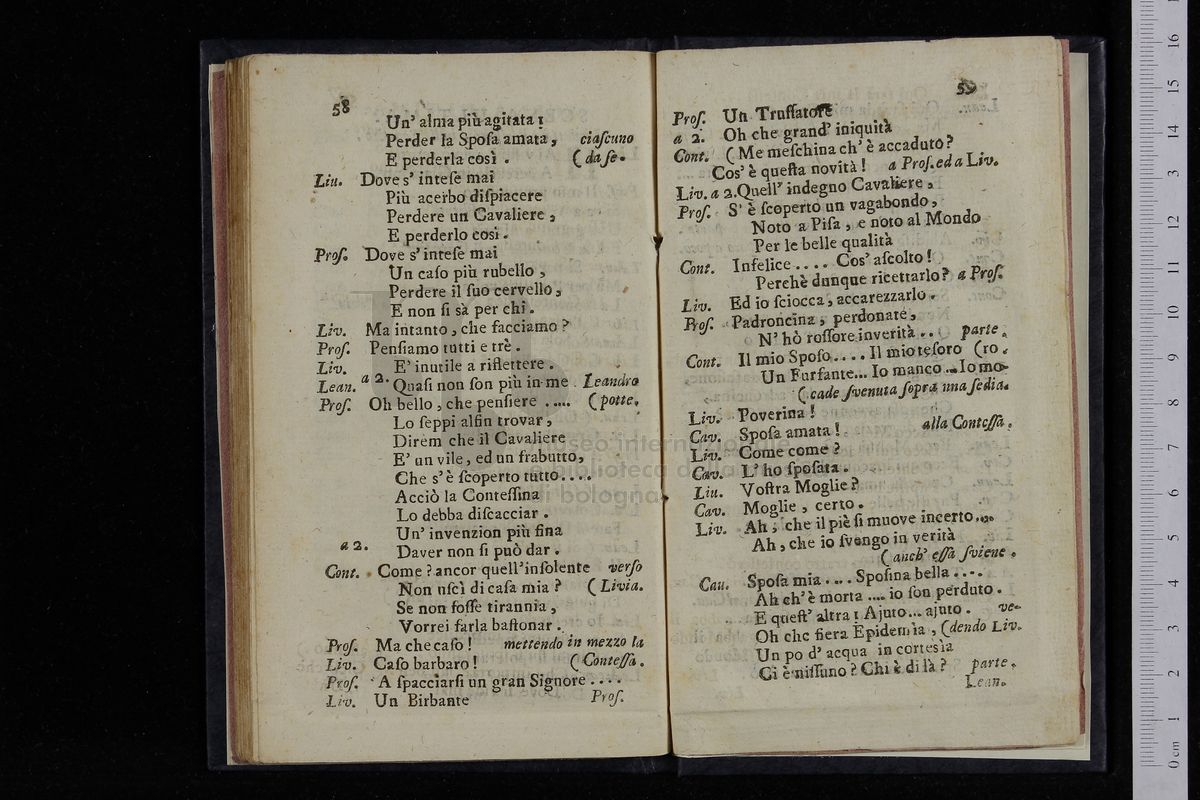 58
Un' alma più agitata :
Perder la Sposa amata, ciascuno
E perderla così . (da se.
Liu. Dove s' intese mai
Più acerbo dispiacere
Perdere un Cavaliere ,
E perderlo così .
Pros. Dove s' intese mai
Un caso più rubello ,
Perdere il suo cervello ,
E non si sà per chi .
Liv. Ma intanto , che facciamo ?
Pros. Pensiamo tutti e trè .
Liv. E' inutile a riflettere .
Lean. a 2. Quasi non son più in me . Leandro
Pros. Oh bello , che pensiere ..... (parte.
Lo seppi alfin trovar ,
Direm che il Cavaliere
E' un vile , ed un frabutto,
Che s' è scoperto tutto ....
Acciò la Contessina
Lo debba discacciar .
Un' invenzion più fina
a 2. Daver non si può dar .
Cont. Come ? ancor quell' insolente verso
Non uscì di casa mia ? (Livia.
Se non fosse tirannia ,
Vorrei farla bastonar .
Pros. Ma che caso ! mettendo in mezzo la
Liv. Caso barbaro ! (Contessa .
Pros. A spacciarsi un gran Signore ....
Liv. Un Birbante
Pros.
59
Pros. Un Truffatore
a 2. Oh che grand' iniquità
Cont. ( Me meschina ch' è accaduto ?
Cos' è questa novità ! a Pros. ed a Liv.
Liv. a 2. Quell' indegno Cavaliere ,
Pros. S' è scoperto un vagabondo ,
Noto a Pisa , e noto al Mondo
Per le belle qualità
Cont. Infelice .... Cos' ascolto !
Perchè dunque ricettarlo ? a Pros.
Liv. Ed io sciocca , accarezzarlo .
Pros. Padroncina , perdonate ,
N' hò rossore inverità .. parte .
Cont. Il mio Sposo .... Il mio tesoro (ro .
Un Furfante... Io manco .. Io mo-
( cade svenuta sopra una sedia.
Liv. Poverina !
Cav. Sposa amata ! alla Contessa .
Liv. Come come ?
Cav. L' ho sposata .
Liu. Vostra Moglie ?
Cav. Moglie , certo .
Liv. Ah , che il piè si muove incerto ....
Ah , che io svengo in verità
( anch' essa sviene .
Cau. Sposa mia .... Sposina bella ....
Ah ch' è morta .... io son perduto .
E quest' altra : Ajuto... ajuto . ve-
Oh che fiera Epidemìa , (dendo Liv.
Un po d' acqua in cortesìa
Ci è nissuno ? Chi è di là ? parte .
Lean.